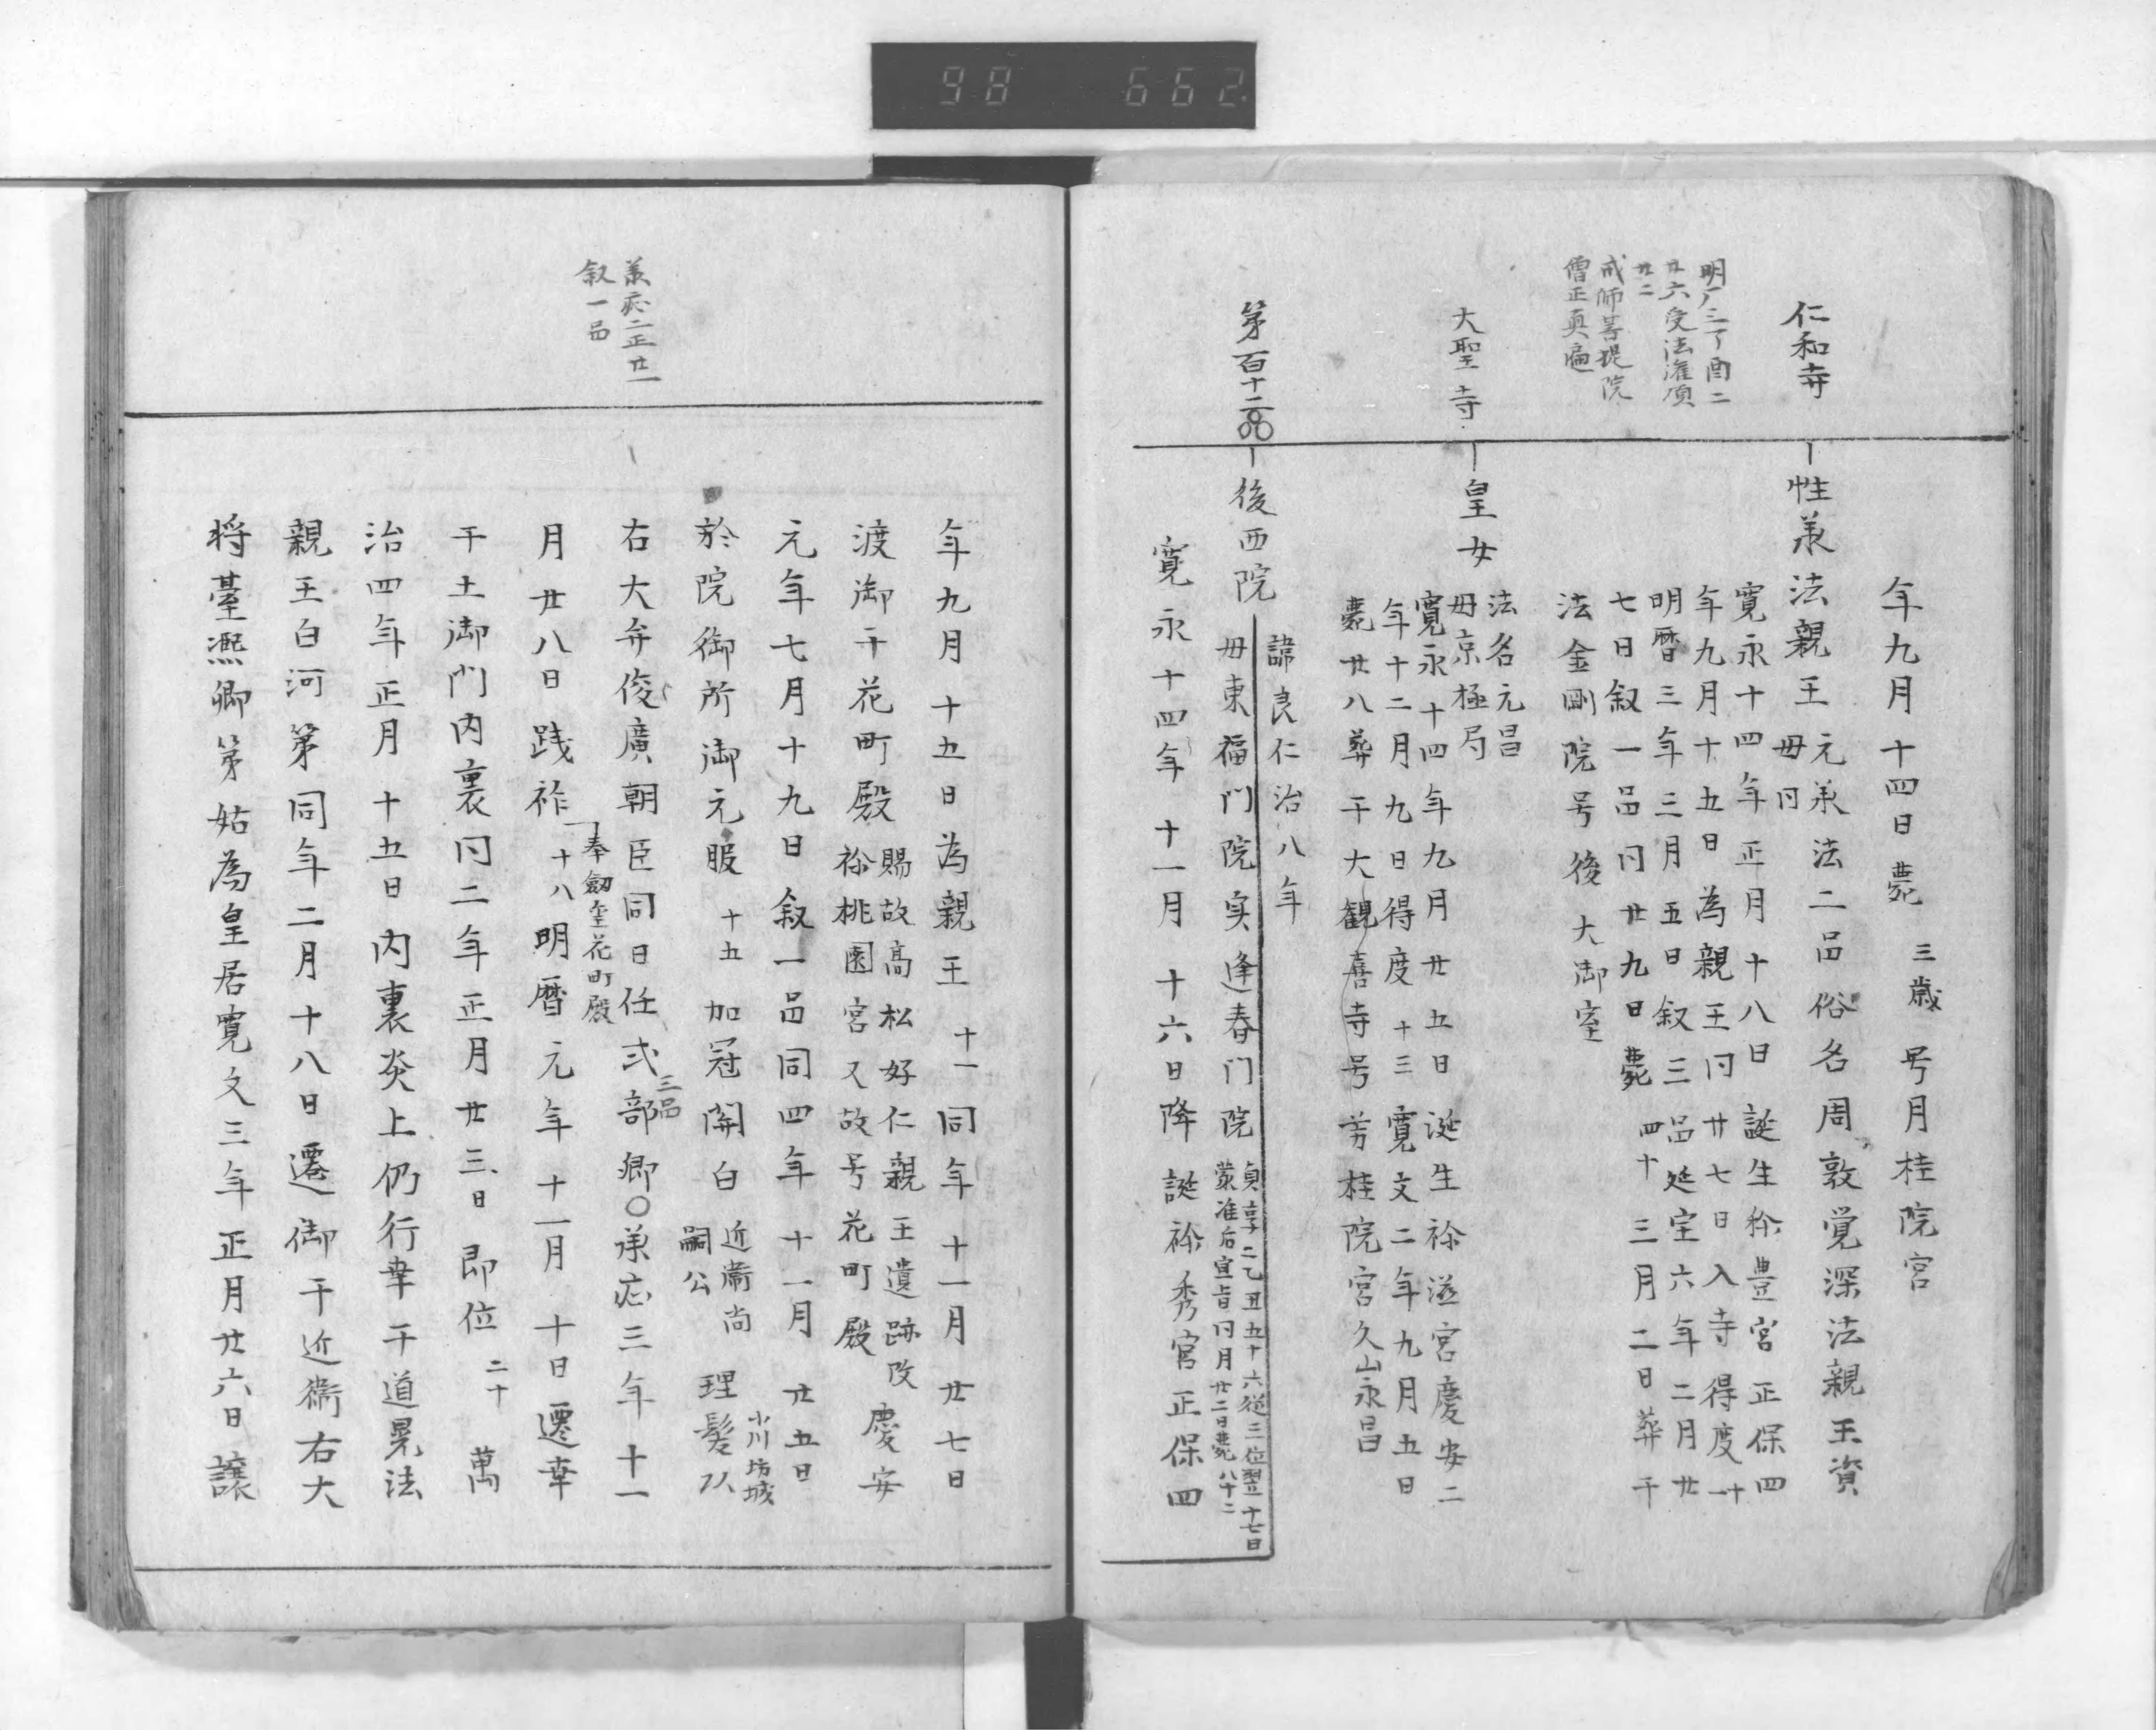 98 662
年九月十四日薨 三歳 号月桂院宮
仁和寺
性承法親王 元承法二品俗名周敦覚深法親王資
母同
寛永十四年正月十八日誕生称豊宮正保四
年九月十五日為親王同廿七日入寺得度十一
明暦三年三月五日叙三品延宝六年二月廿
七日叙一品同廿九日薨 四十 三月二日葬于
法金剛院号後大御室
明厂三丁酉二
廿六受法灌頂
廿二
戒師菩提院
僧正真遍
大聖寺
皇女
法名元昌
母京極局
寛永十四年九月廿五日誕生称滋宮慶安二
年十二月九日得度 十三 寛文二年九月五日
薨廿八葬于大観喜寺号芳桂院宮久山永昌
第百十二
後西院
諱良仁治八年
母東福門院实逢春门院
貞享二乙丑五十六従三位翌十七日
蒙准后宣旨同月廿二日薨八十二
寛永十四年十一月十六日降誕称秀宮正保四
年九月十五日為親王 十一 同年十一月廿七日
渡御于花町殿
賜故高松好仁親王遺跡改
称桃園宮又故号花町殿
慶安
元年七月十九日叙一品同四年十一月廿五日
於院御所御元服 十五 加冠関白
近衛尚
嗣公
理髪以
小川坊城
右大弁俊廣朝臣同日任式部卿○承応三年十一
三品
承応二正廿一
叙一品
月廿八日践祚
奉劔璽花町殿
十八
明暦元年十一月十日遷幸
于土御門内裏同二年正月廿三日即位 二十 萬
治四年正月十五日内裏炎上仍行幸于道晃法
親王白河第同年二月十八日遷御于近衛右大
将基熈卿第姑為皇居寛文三年正月廿六日譲